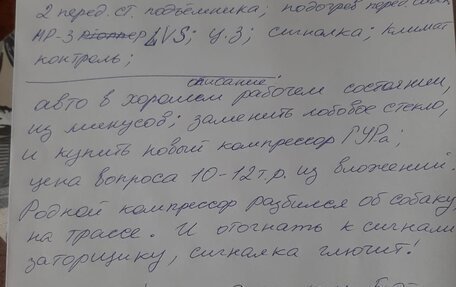 2 перед. ст. подъёмника; подогрев перед. сидн
МР-3 Pioneer 4VS; ц.з; сигналка; климат
контроль;
описание:
авто в хорошем рабочем состоянии,
из минусов; заменить лобовое стекло,
и купить новый компрессор ГУРа;
цена вопроса 10-12т.р. из вложений.
Родной компрессор разбился об собаку,
на трассе. И отогнать к сигнали
заторщику, сигналка глючит!